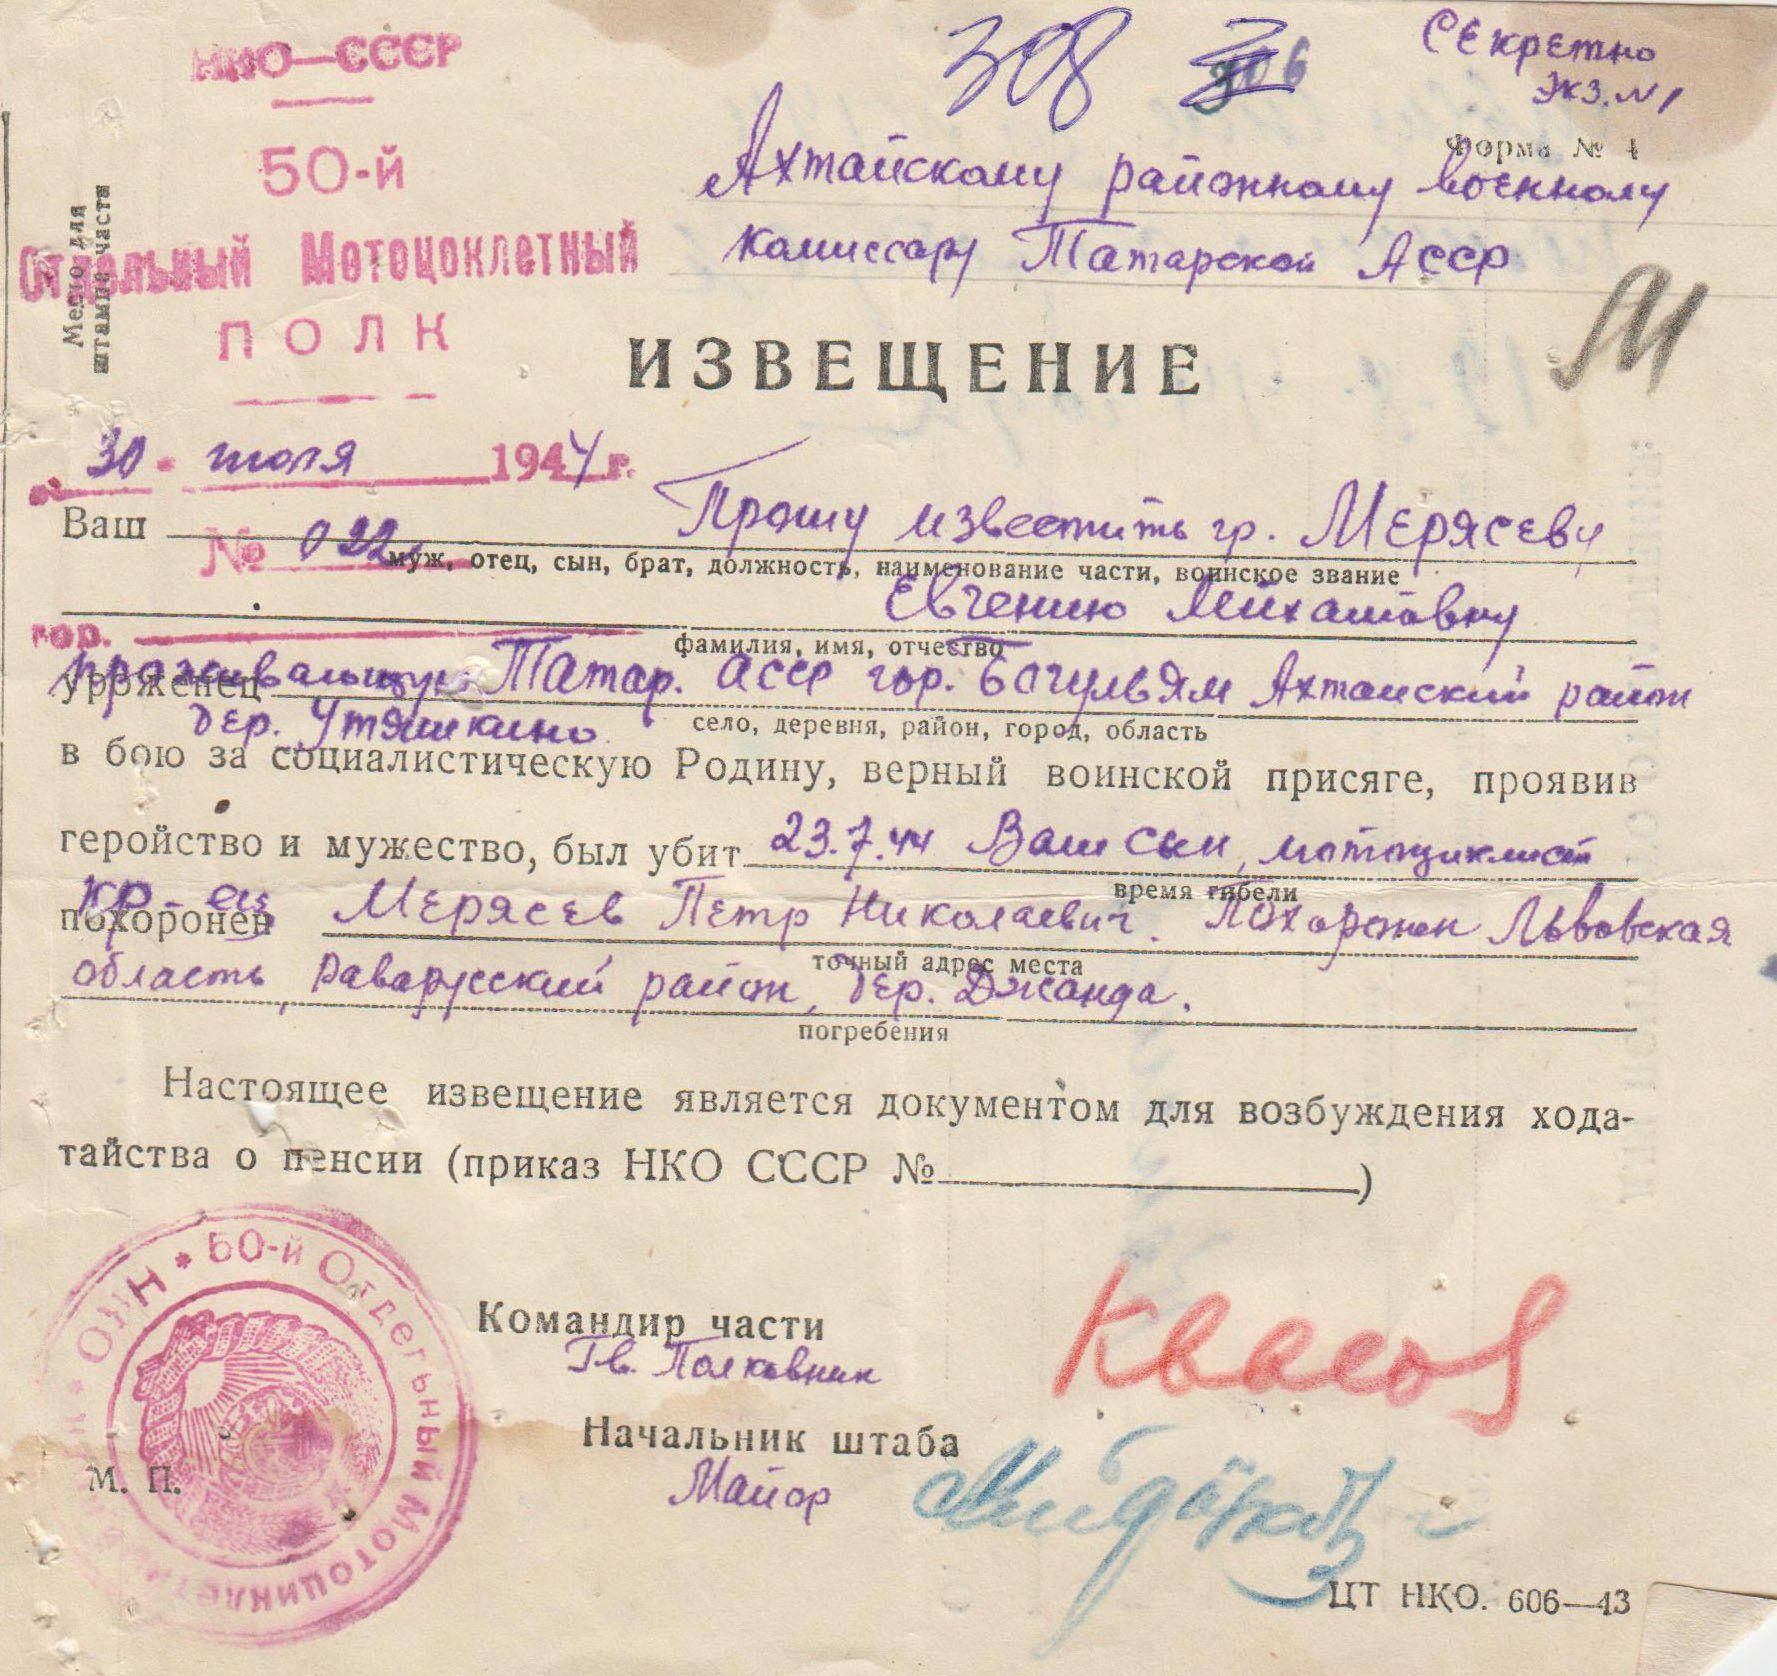 НКО—СССР
50-й
Отдельный Мотоцоклетный
ПОЛК
Место для
штампа части
308
306
Секретно
Экз. №1
Форма № 4
Ахтайскому районному военному
комиссару Татарской АССР
ИЗВЕЩЕНИЕ
30 июля 1944 г.
№ 022
гор.
Ваш Прошу известить гр. Мерясеву
муж, отец, сын, брат, должность, наименование части, воинское звание
Евгению
фамилия, имя, отчество
уроженец проживающую Татар. АССР гор. Бугульям Ахтайский район
дер. Утяшкино
село, деревня, район, город, область
в бою за социалистическую Родину, верный воинской присяге, проявив
геройство и мужество, был убит 23.7.44 Ваш сын, мотоциклист
время гибели
похоронен кр-ец Мерясев Петр Николаевич. Похоронен Львовская
точный адрес места
область, Раварусский район, дер. Джанда.
погребения
Настоящее извещение является документом для возбуждения хода-
тайства о пенсии (приказ НКО СССР № )
Командир части
Гв. Полковник
Квасов
Начальник штаба
Майор
М. П.
50-й Отдельный Мотоциклетный
ЦТ НКО. 606—43